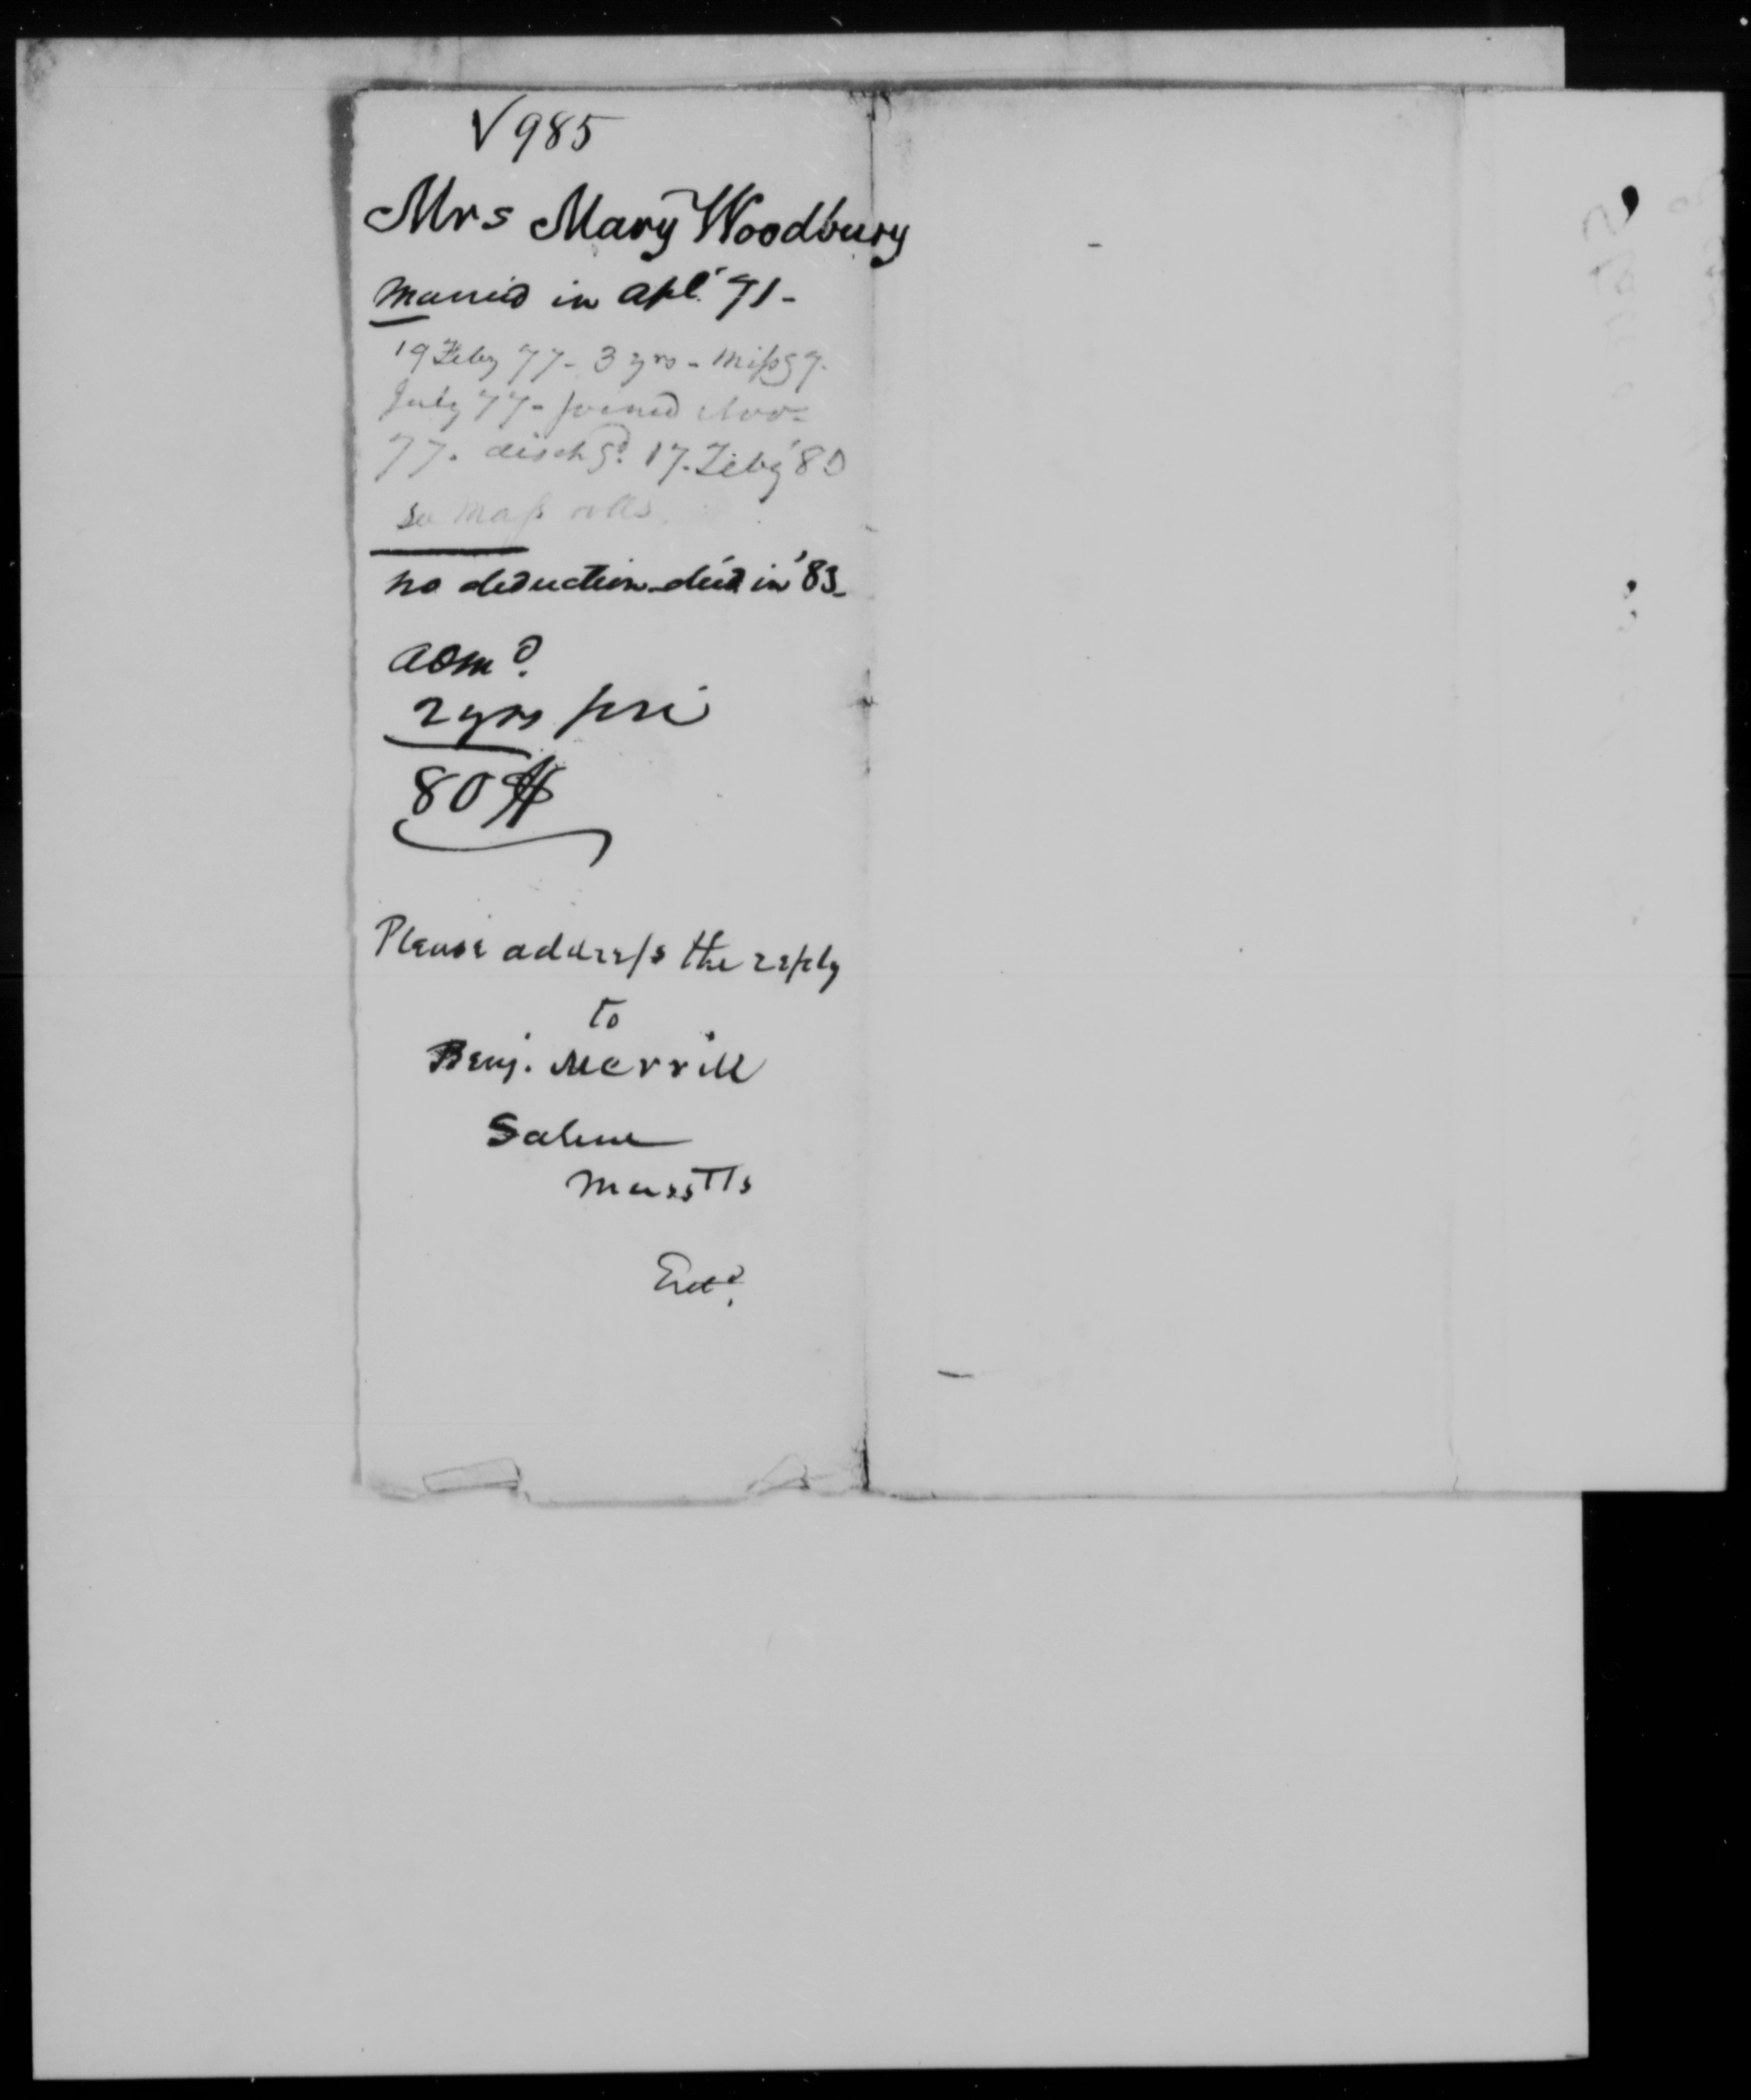 √985
Mrs Mary Woodbury
Married in Apl. '91-
19 Feby 77- 3 yrs - Missg
July 77- joined Nov=
77. dischgd. 17. Feby '80
See Mass rolls.
no deduction - died in '83-
Admd.
2 yrs pri
80 $
Please address the reply
to
Benj. Merrill
Salem
Masstts
Entd.